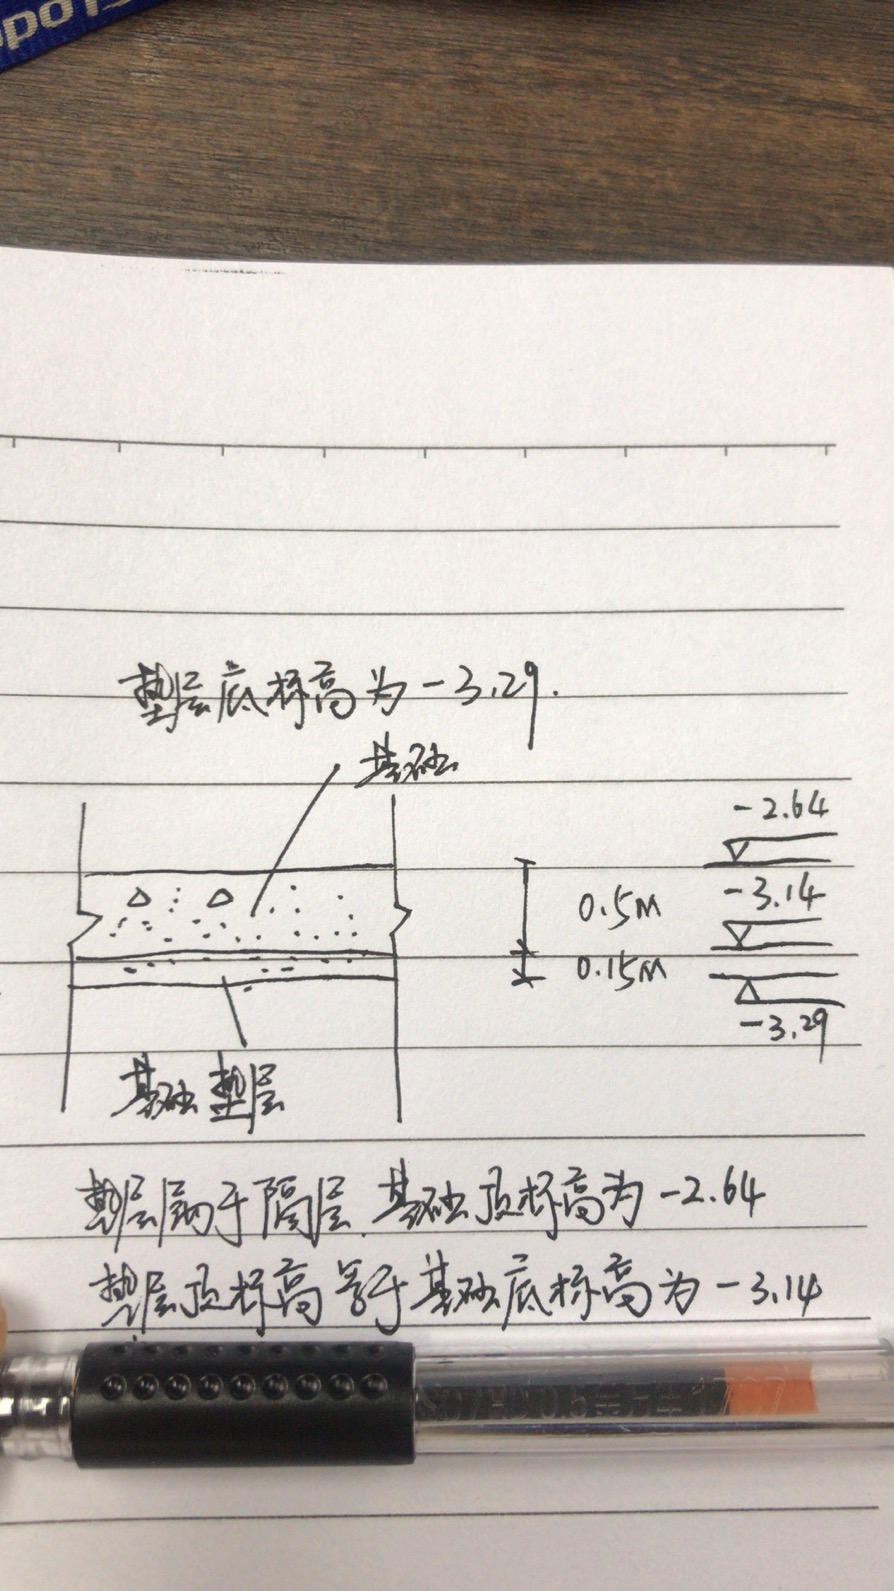 垫层底标高为-3.29.
基础
-2.64
0.5M
-3.14
0.15M
-3.29
基础垫层
垫层属于隔层.基础顶标高为-2.64
垫层顶标高等于基础底标高为-3.14